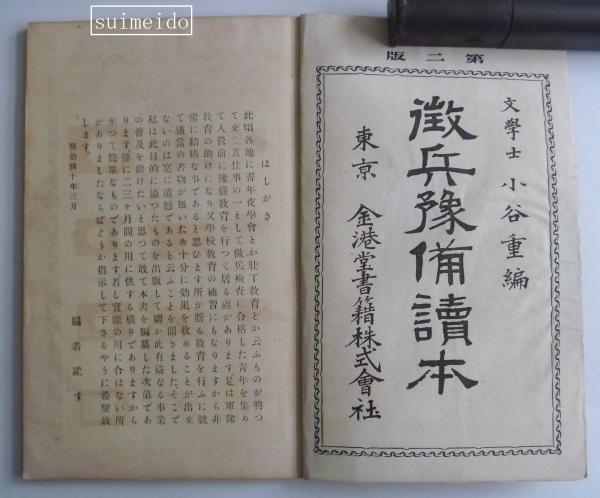 suimeido
第二版
文學士 小谷重編
徵兵豫備讀本
東京 金港堂書籍株式會社
はしがき
此頃各地に青年夜學會とか壯丁教育とか云ふものが興つ
て來て其仕事の一として徵兵檢査に合格した青年を集め
て入營前に豫備教育を行つて居る處があります是は軍隊
教育の助けになり又學校教育の補習にもなりますから非
常に結構な事であると思ひます所が斯る教育を行ふに就
て適當の書物が無いため十分に効果を收めることが出來
ないのは實に遺憾であると云ふことを聞きました、そこで
私は此目的に適つたものを出版して聊か此有益なる事業
の普及を助けたいと思つて敢て本書を編纂した次第であ
ります、僅に二三ケ月間の用に供する積りでありますから
至つて簡單なものであります若し實際の用に合はない所
がありましたならばどうか指示して下さるやうに希望致
します。
明治四十年三月
編者識す